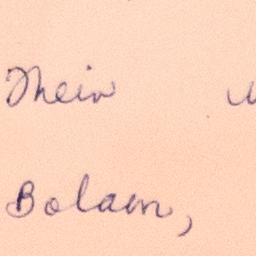 Their
Bolaen,